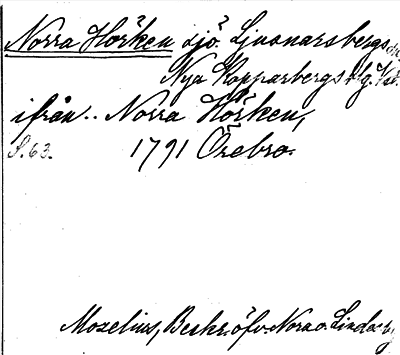 Norra Hörken sjö. Ljusnarsbergs
Nya Kopparbergs bg.
ifrån.. Norra Hörken,
S. 63. 1791 Örebro.
Moselius, Beskr. öfv. Nora o. Lindesb